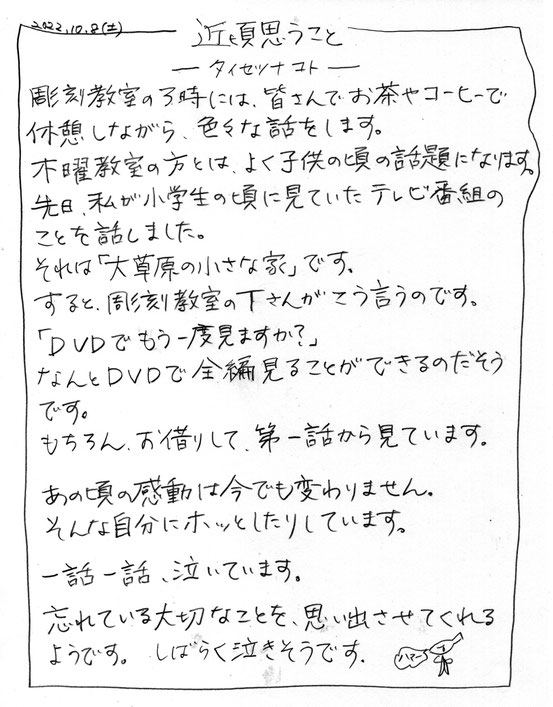 2022.10.8(土)
近頃思うこと
― タイセツナ コト ―
彫刻教室の3時には、皆さんでお茶やコーヒーで
休憩しながら、色々な話をします。
木曜教室の方とは、よく子供の頃の話題になります。
先日、私が小学生の頃に見ていたテレビ番組の
ことを話しました。
それは「大草原の小さな家」です。
すると、彫刻教室のTさんがこう言うのです。
「DVDでもう一度見ますか?」
なんとDVDで全編見ることができるのだそう
です。
もちろん、お借りして、第一話から見ています。
あの頃の感動は今でも変わりません。
そんな自分にホッとしたりしています。
一話一話、泣いています。
忘れている大切なことを、思い出させてくれる
ようです。 しばらく泣きそうです.